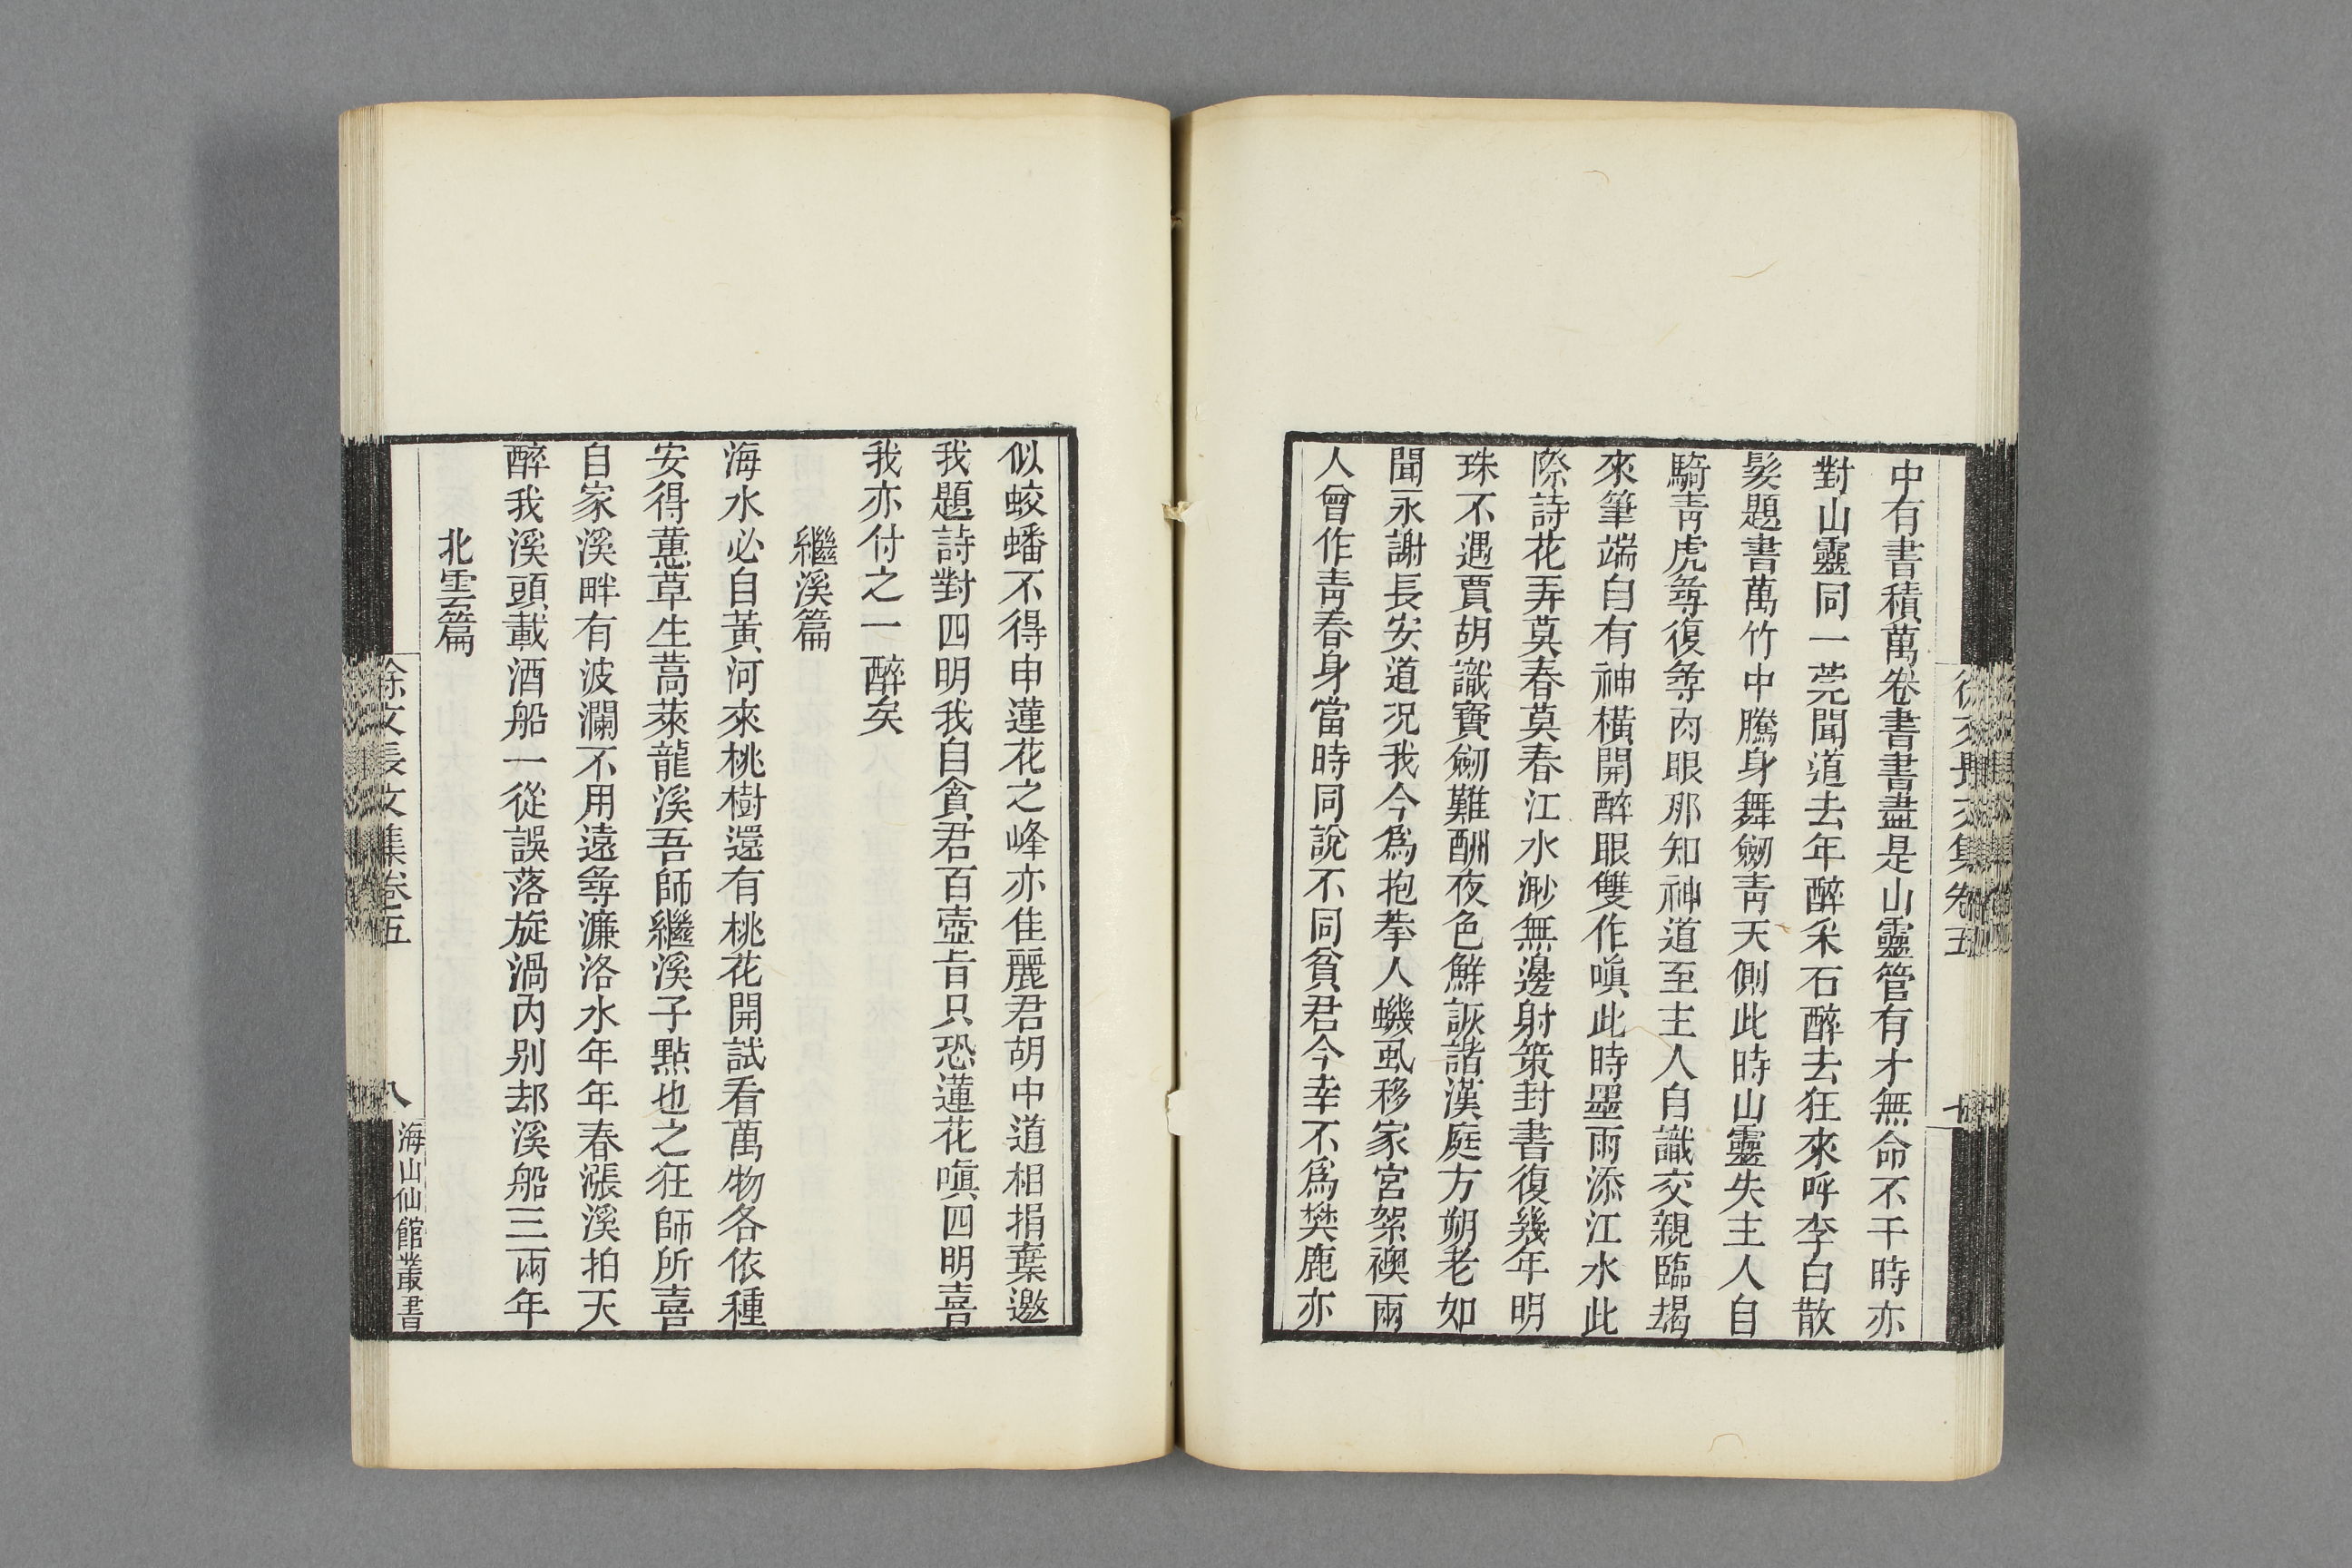 中有書積萬卷書書盡是山靈管有才無命不干時亦
對山靈同一莞聞道去年醉采石醉去狂來呼李白散
髮題書萬竹中騰身舞劒青天側此時山靈失主人自
騎青虎尋復尋肉眼那知神道至主人自識交親臨朅
來筆端自有神橫開醉眼雙作嗔此時墨雨添江水此
際詩花弄莫春莫春江水渺無邊射策封書復幾年明
珠不遇賈胡識寶劒難酬夜色鮮詼諧漢庭方朔老如
聞永謝長安道況我今爲抱拳人蟣虱移家宮絮襖兩
人曾作青春身當時同說不同貧君今幸不爲樊鹿亦
似蛟蟠不得申蓮花之峰亦佳麗君胡中道相捐棄邀
我題詩對四明我自貪君百壺旨只恐蓮花嗔四明喜
我亦付之一醉矣
繼溪篇
海水必自黃河來桃樹還有桃花開試看萬物各依種
安得蕙草生蒿萊龍溪吾師繼溪子點也之狂師所喜
自家溪畔有波瀾不用遠尋濂洛水年年春漲溪拍天
醉我溪頭載酒船一從誤落旋渦內別却溪船三兩年
北雲篇
徐文長文集卷五
八
海山仙館叢書